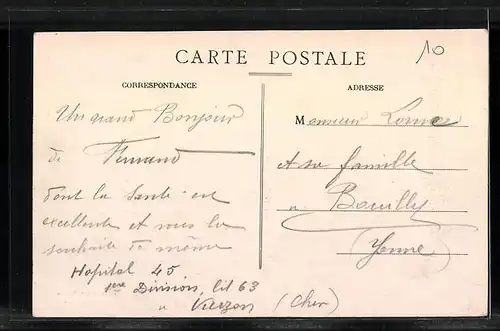 10
CARTE POSTALE
CORRESPONDANCE
ADRESSE
Un grand Bonjour
de Fernand
dont la santé est
excellente et vous la
souhaite de même
Hopital 45
1ere Division, lit 63
a Vierzon (Cher)
Monsieur
et sa famille
a Bouilly
(Yonne)